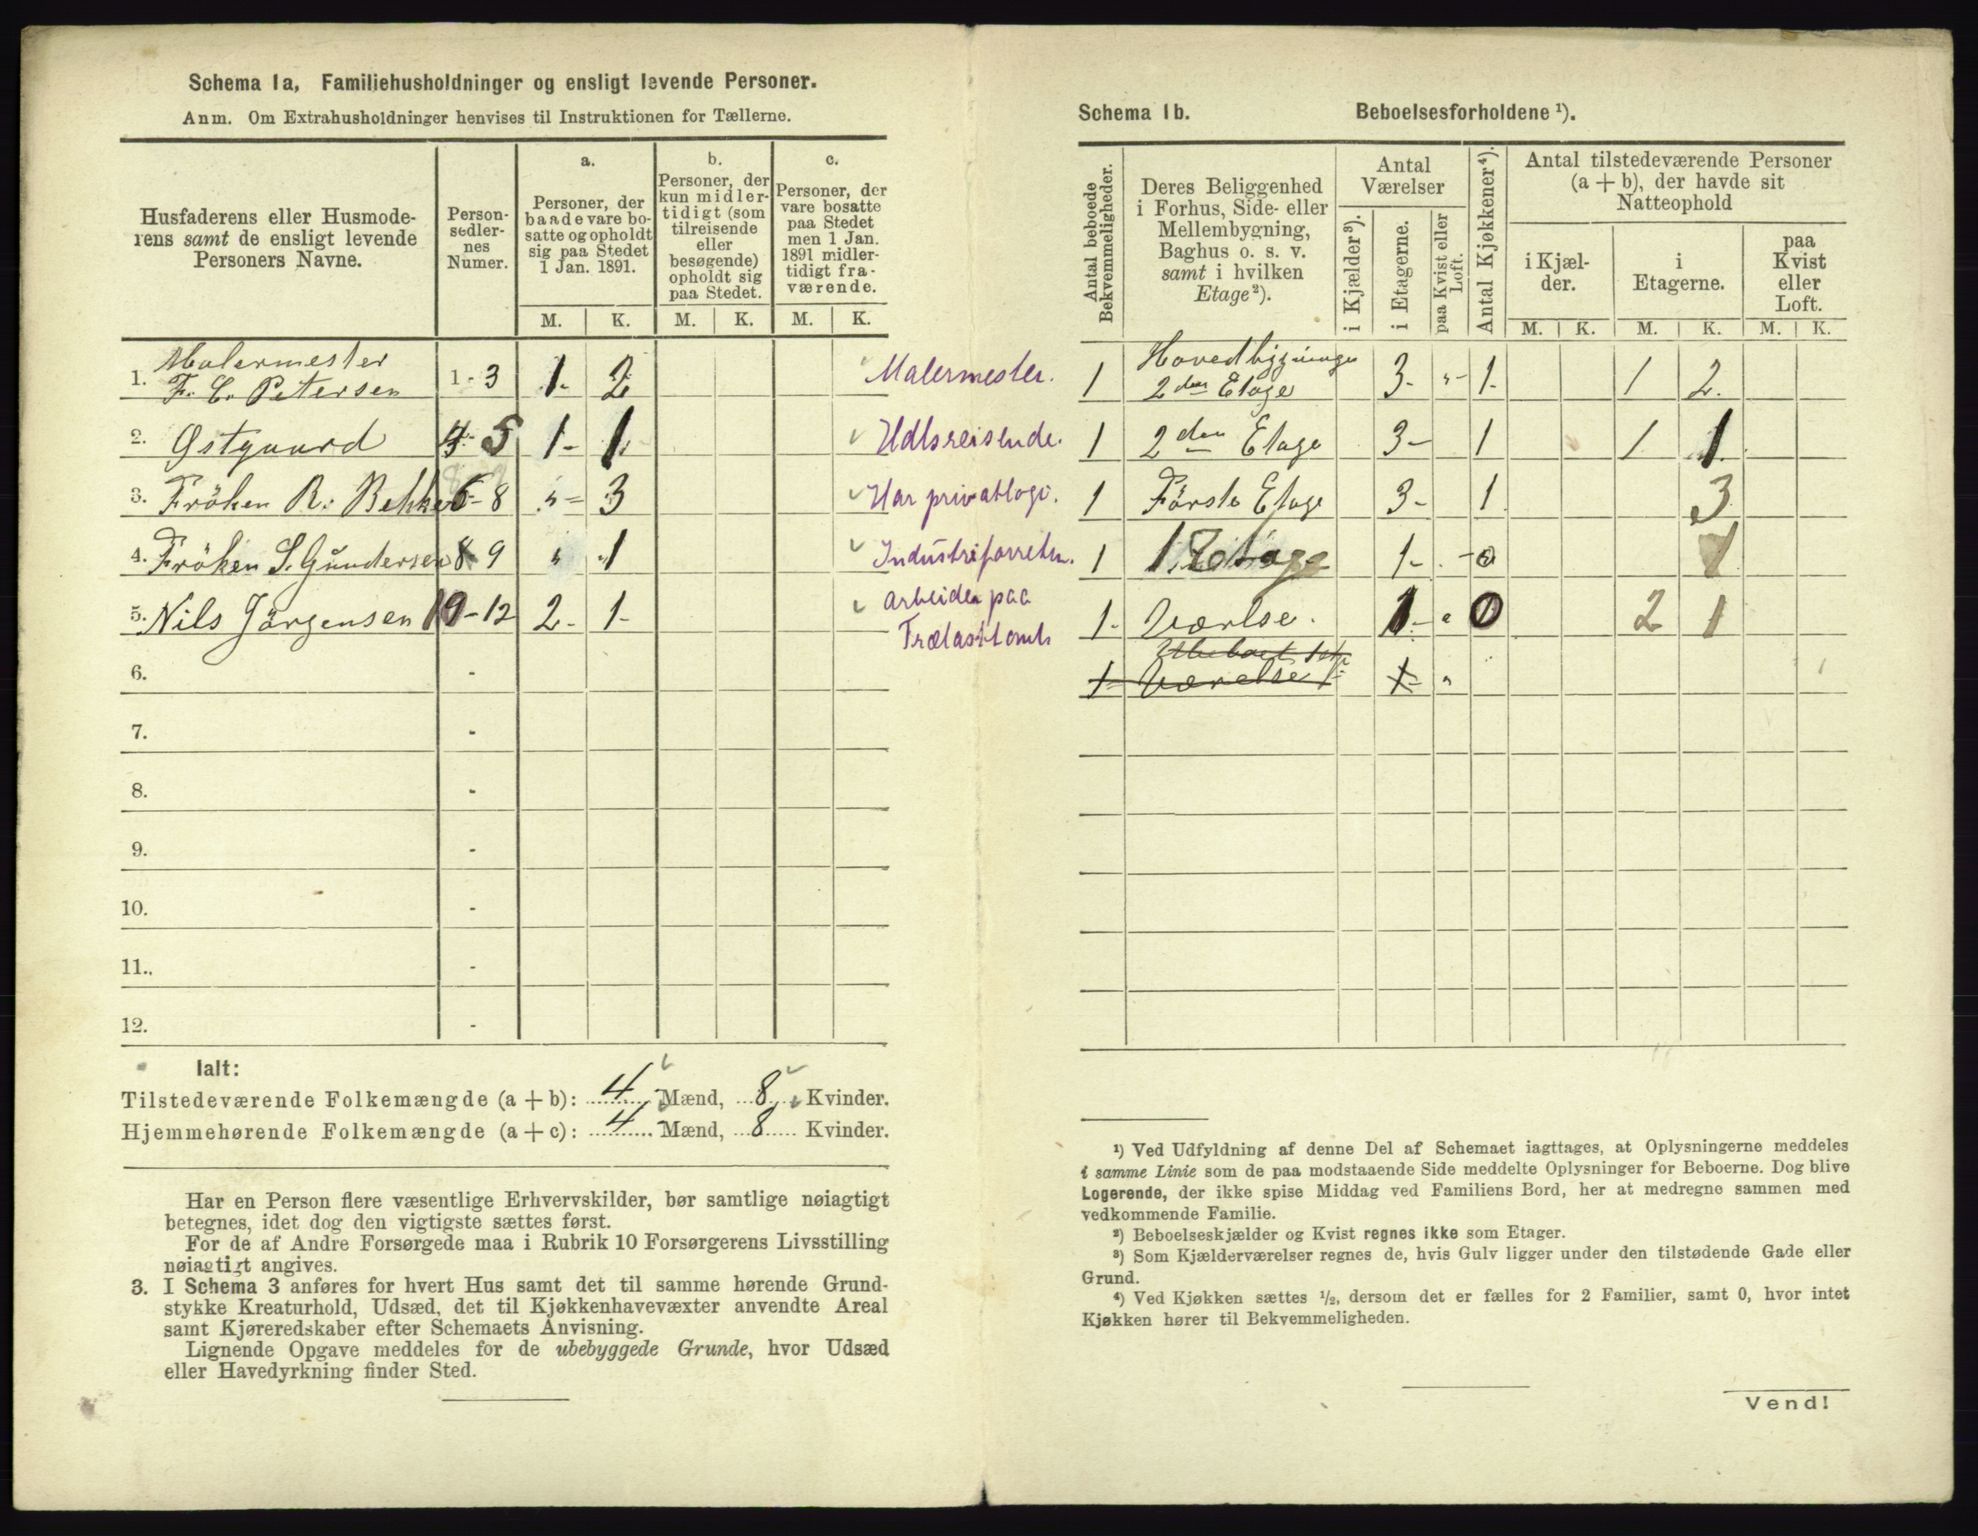 Schema 1a, Familiehusholdninger og ensligt levende Personer.
Anm. Om Extrahusholdninger henvises til Instruktionen for Tællerne.
Husfaderens eller Husmode-
rens samt de ensligt levende
Personers Navne.
Person-
sedler-
nes
Numer.
a.
Personer, der
baade vare bo-
satte og opholdt
sig paa Stedet
1 Jan. 1891.
b.
Personer, der
kun midler-
tidigt (som
tilreisende
eller
besøgende)
opholdt sig
paa Stedet.
c.
Personer, der
vare bosatte
paa Stedet
men 1 Jan.
1891 midler-
tidigt fra-
værende.
M. K. M. K. M. K.
Malermester
1. F. C. Petersen 1 - 3 1- 2 Malermester.
2. Østgaard 4 - 5 1- 1 Udtsreisende.
3. Frøken R. Bekke 6 - 8 „ = 3 Har privatlogi.
4. Frøken S. Gundersen 9 „ 1 Industriforretn.
5. Nils Jørgensen 10 - 12 2- 1- Arbeider paa
Trælasttomt
6. -
7. -
8. -
9. -
10. -
11. -
12. -
Ialt:
Tilstedeværende Folkemængde (a + b): 4 Mænd, 8 Kvinder.
Hjemmehørende Folkemængde (a + c): 4 Mænd, 8 Kvinder.
Har en Person flere væsentlige Erhvervskilder, bør samtlige nøiagtigt
betegnes, idet dog den vigtigste sættes først.
For de af Andre Forsørgede maa i Rubrik 10 Forsørgerens Livsstilling
nøiagtigt angives.
3. I Schema 3 anføres for hvert Hus samt det til samme hørende Grund-
stykke Kreaturhold, Udsæd, det til Kjøkkenhavevæxter anvendte Areal
samt Kjøreredskaber efter Schemaets Anvisning.
Lignende Opgave meddeles for de ubebyggede Grunde, hvor Udsæd
eller Havedyrkning finder Sted.
Schema 1b. Beboelsesforholdene ¹).
Antal beboede
Bekvemmeligheder.
Deres Beliggenhed
i Forhus, Side- eller
Mellembygning,
Baghus o. s. v.
samt i hvilken
Etage ²).
Antal
Værelser
i Kjælder ³).
i Etagerne.
paa Kvist eller
Loft.
Antal Kjøkkener ⁴).
Antal tilstedeværende Personer
(a + b), der havde sit
Natteophold
i Kjæl-
der.
i
Etagerne.
paa
Kvist
eller
Loft.
M. K. M. K. M. K.
1 Hovedbygninge
2den Etage 3- „- 1- 1 2.
1 2den Etage 3- 1 1 1
1 Første Etage 3- 1 3
1 1 Etage 1- - 0 1
1- Værlse. 1- „ 0 2 1
1- Værelse 1- „
¹) Ved Udfyldning af denne Del af Schemaet iagttages, at Oplysningerne meddeles
i samme Linie som de paa modstaaende Side meddelte Oplysninger for Beboerne. Dog blive
Logerende, der ikke spise Middag ved Familiens Bord, her at medregne sammen med
vedkommende Familie.
²) Beboelseskjælder og Kvist regnes ikke som Etager.
³) Som Kjælderværelser regnes de, hvis Gulv ligger under den tilstødende Gade eller
Grund.
⁴) Ved Kjøkken sættes ½, dersom det er fælles for 2 Familier, samt 0, hvor intet
Kjøkken hører til Bekvemmeligheden.
Vend!